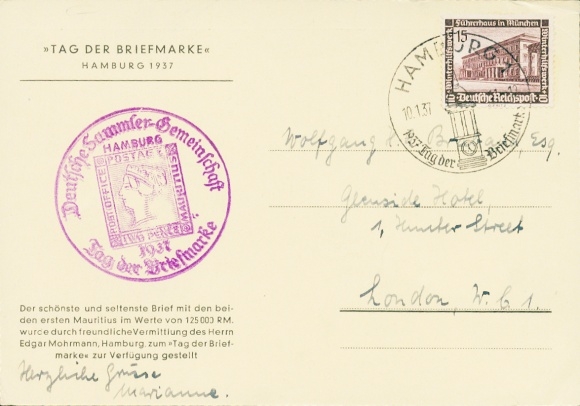 »TAG DER BRIEFMARKE«
HAMBURG 1937
Führerhaus in München
15
Winterhilfswerk
Winterhilfswerk
10 Deutsche Reichspost 10
HAMBURG
10.1.37
1937 Tag der Briefmarke
Deutsche Sammler-Gemeinschaft
HAMBURG
POSTAGE
POST OFFICE
MAURITIUS
TWO PENCE
1937
Tag der Briefmarke
Wolfgang Esq.
Glenside Hotel,
1, Hunter Street
London, W. C. 1.
Der schönste und seltenste Brief mit den bei-
den ersten Mauritius im Werte von 125 000 RM.
wurde durch freundliche Vermittlung des Herrn
Edgar Mohrmann, Hamburg, zum »Tag der Brief-
marke« zur Verfügung gestellt
Herzliche Grüsse
Marianne.